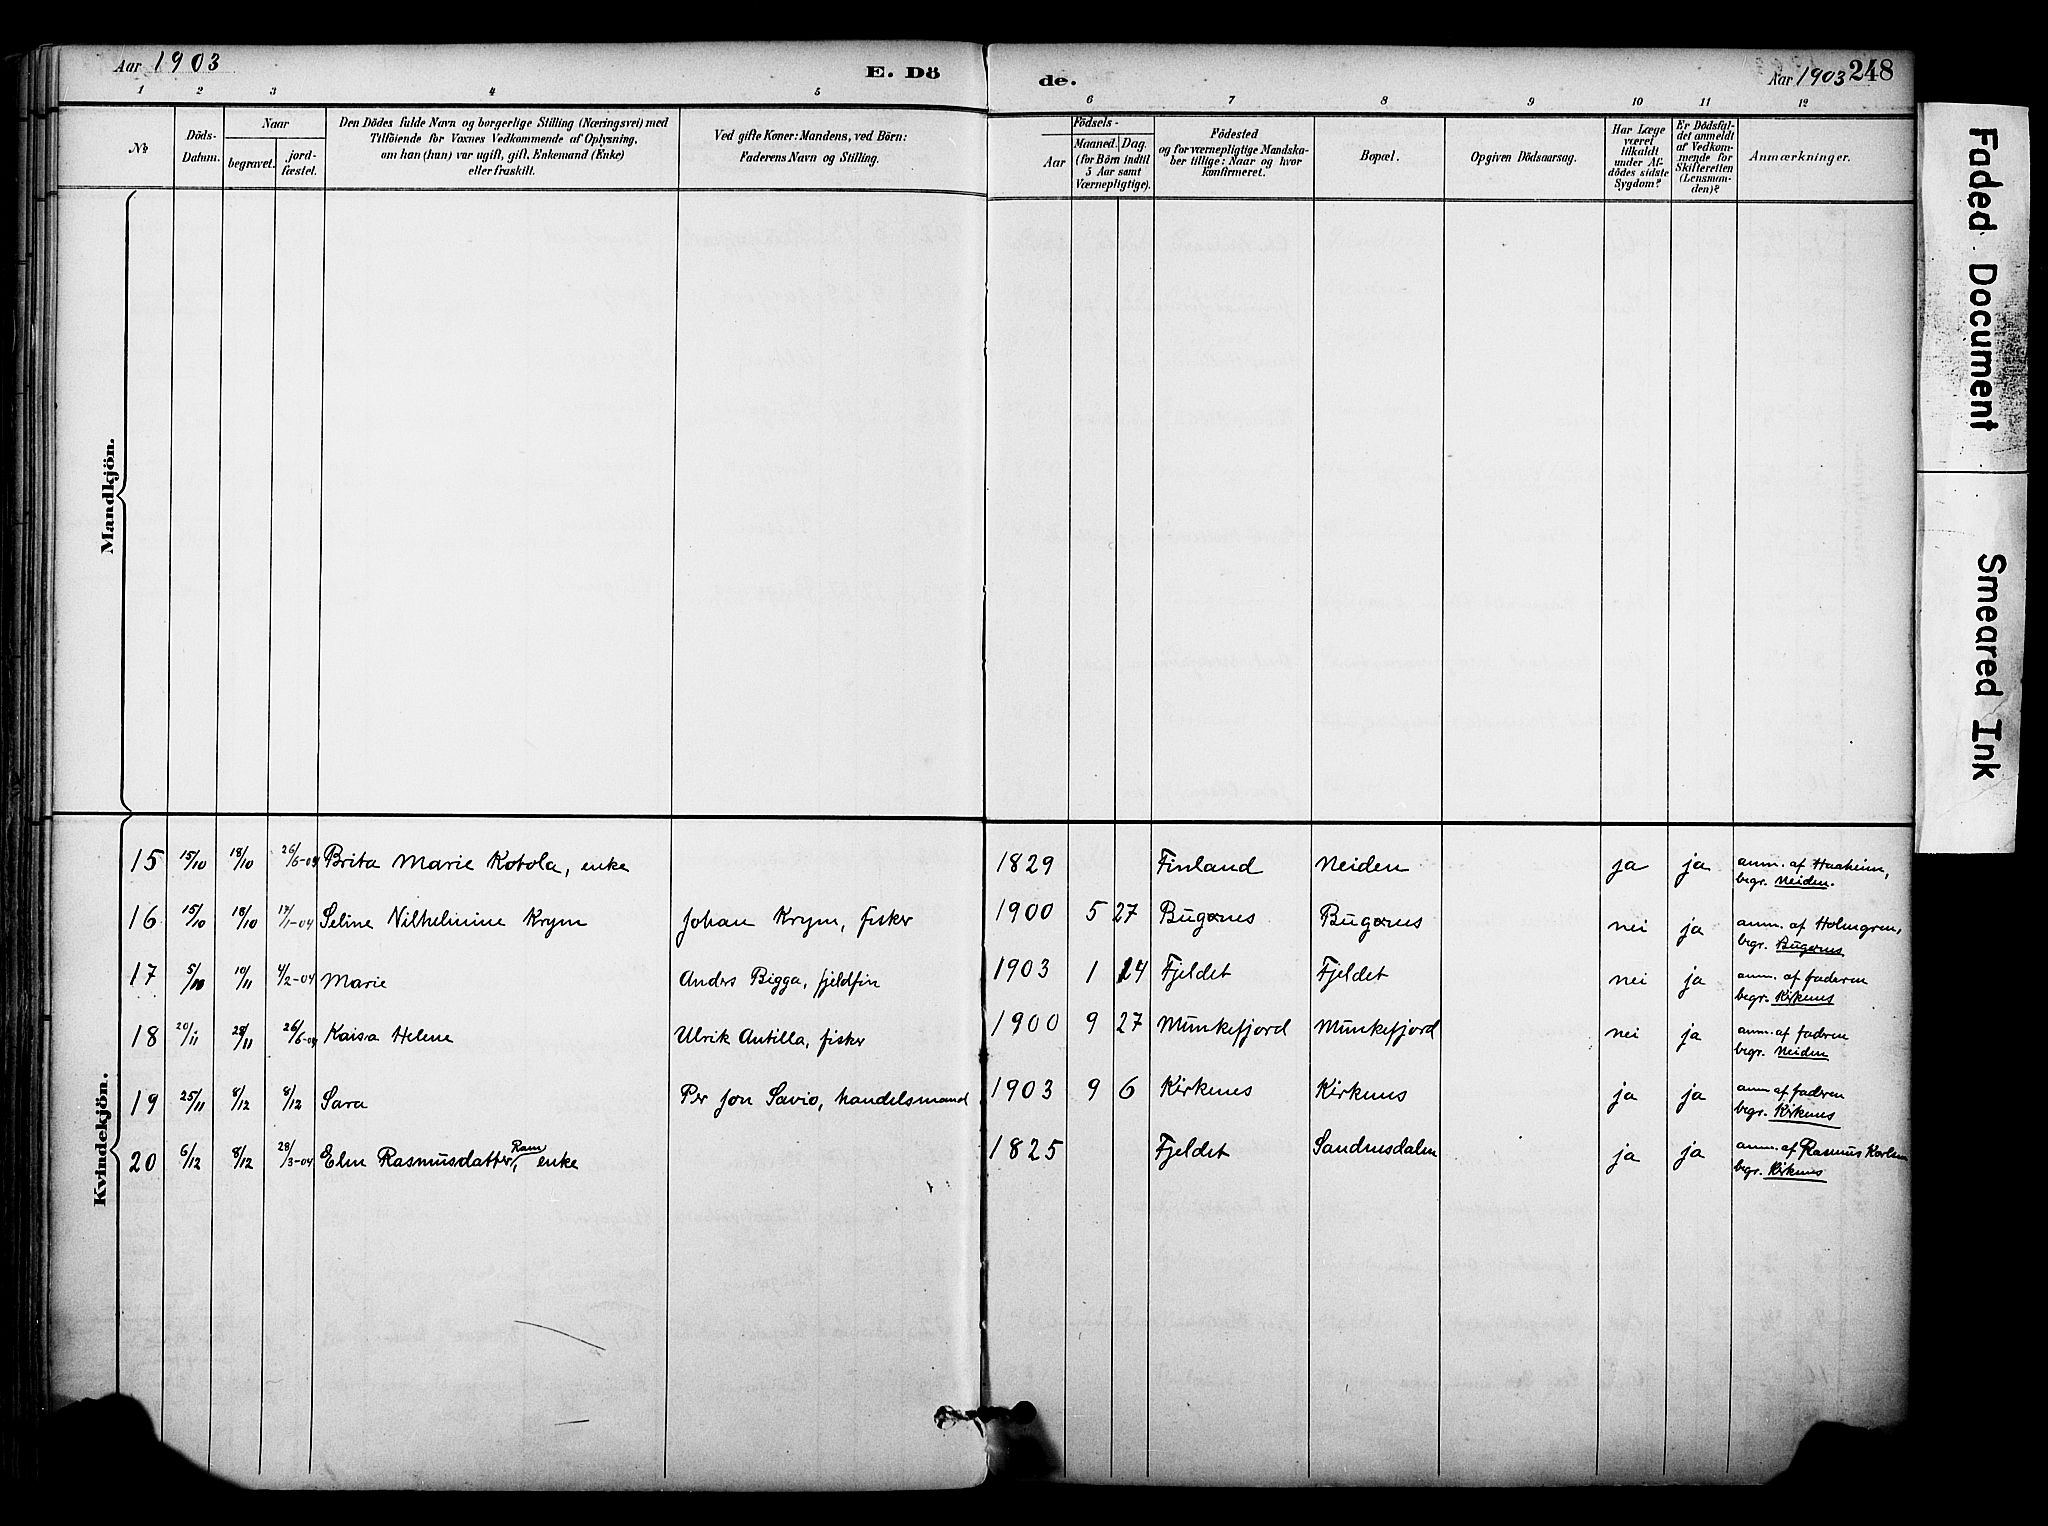 Aar 1903
E. Dö
de.
Aar 1903
248
1 2 3 4 5
6 7 8 9 10 11 12
No
Döds-
Datum.
Naar
begravet.
jord-
fæstet.
Den Dödes fulde Navn og borgerlige Stilling (Næringsvei) med
Tilföiende for Voxnes Vedkommende af Oplysning,
om han (hun) var ugift, gift, Enkemand (Enke)
eller fraskilt.
Ved gifte Koner: Mandens, ved Börn:
Faderens Navn og Stilling.
Födsels-
Aar
Maaned. Dag.
(for Börn indtil
5 Aar samt
Værnepligtige).
Födested
og for værnepligtige Mandska-
ber tillige: Naar og hvor
konfirmeret.
Bopæl.
Opgiven Dödsaarsag.
Har Læge
været
tilkaldt
under Af-
dödes sidste
Sygdom?
Er Dödsfal-
det anmeldt
af Vedkom-
mende for
Skifteretten
(Lensman-
den)?
Anmærkninger.
Mandkjön.
Kvindekjön.
15 15/10 18/10 26/6-04 Brita Marie Kotola, enke 1829 Finland Neiden ja ja anm. af Haaheim,
begr. Neiden.
16 15/10 18/10 17/1-04 Seline Vilhelmine Krym Johan Krym, fisker 1900 5 27 Bugønes Bugønes nei ja anm. af Holmgren,
begr. Bugønes
17 5/10 10/11 4/2-04 Marie Anders Bigga, fjeldfin 1903 1 24 Fjeldet Fjeldet nei ja anm. af faderen
begr. Kirkenes
18 20/11 28/11 26/6-04 Kaisa Helene Ulrik Antilla, fisker 1900 9 27 Munkefjord Munkefjord nei ja anm. af fadren
begr. Neiden
19 25/11 8/12 8/12 Sara Per Jon Savio, handelsmand 1903 9 6 Kirkenes Kirkenes ja ja anm af faderen
begr. Kirkenes
20 6/12 8/12 28/3-04 Elen Rasmusdatter, Ram enke 1825 Fjeldet Sandnesdalen ja ja anm. af Rasmus Karlsen
begr. Kirkenes
Faded Document
Smeared Ink